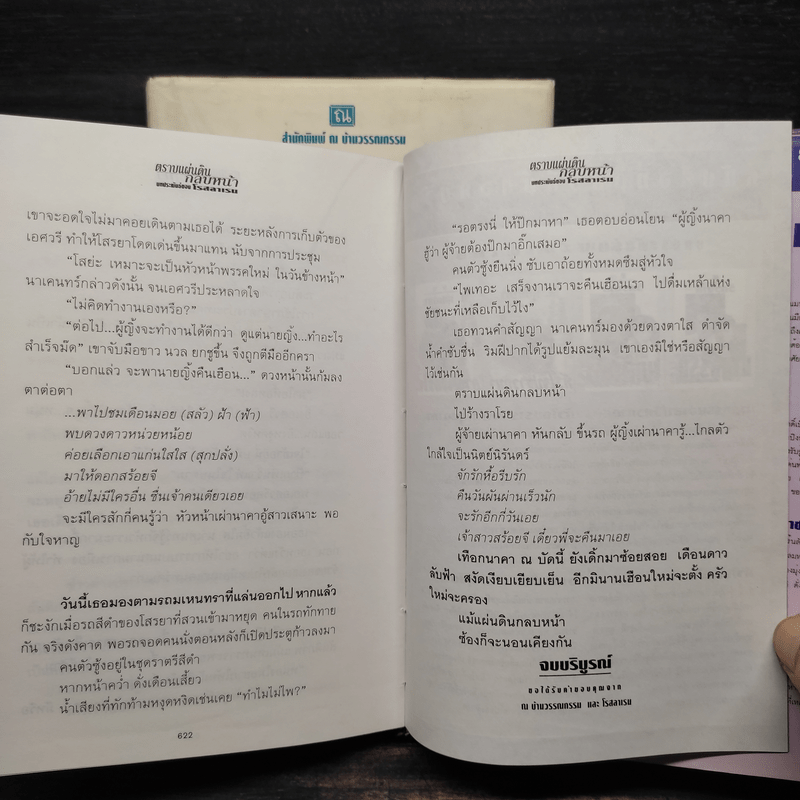 ณ
สำนักพิมพ์ ณ บ้านวรรณกรรม
ตราบแผ่นดิน
กลบหน้า
บทประพันธ์ของ โรสลาเรน
เขาจะอดใจไม่มาคอยเดินตามเธอได้ ระยะหลังการเก็บตัวของ
เอศวรี ทำให้โสรยาโดดเด่นขึ้นมาแทน นับจากการประชุม
“โสย่ะ เหมาะจะเป็นหัวหน้าพรรคใหม่ ในวันข้างหน้า”
นาเคนทร์กล่าวดังนั้น จนเอศวรีประหลาดใจ
“ไม่คิดทำงานเองหรือ?”
“ต่อไป...ผู้ญิ้งจะทำงานได้ดีกว่า ดูแต่นายญิ้ง...ทำอะไร
สำเร็จมืด” เขาจับมือขาว นวล ยกชูขึ้น จึงถูกตีมืออีกครา
“บอกแล้ว จะพานายญิ้งคืนเฮือน...” ดวงหน้านั้นก้มลง
ตาต่อตา
...พาไปชมเดือนมอย (สลัว) ฝ้า (ฟ้า)
พบดวงดาวหน่วยหน้อย
ค่อยเลือกเอาแก่นใสใส (สุกปลั่ง)
มาให้ดอกสร้อยจี
อ้ายไม่มีใครอื่น ชื่นเจ้าคนเดียวเอย
จะมีใครสักกี่คนรู้ว่า หัวหน้าเผ่านาคาอู้สาวเสนาะ พอ
กับใจหาญ
วันนี้เธอมองตามรถมเหนทราที่แล่นออกไป หากแล้ว
ก็ชะงักเมื่อรถสีดำของโสรยาที่สวนเข้ามาหยุด คนในรถทักทาย
กัน จริงดังคาด พอรถจอดคนนั่งตอนหลังก็เปิดประตูก้าวลงมา
คนตัวซู้งอยู่ในชุดราตรีสีดำ
หากหน้าคว่ำ ดั่งเดือนเสี้ยว
น้ำเสียงที่ทักท้ามหงุดหงิดเช่นเคย “ทำไมไม่ไพ?”
622
ตราบแผ่นดิน
กลบหน้า
บทประพันธ์ของ โรสลาเรน
“รอตรงนี่ ให้ปี๊กมาหา” เธอตอบอ่อนโยน “ผู้ญิ้งนาคา
ฮู้ว่า ผู้จ๊ายต้องปี๊กมาอี๊กเสมอ”
คนตัวซู้งยืนนิ่ง ซับเอาถ้อยทั้งหมดซึมสู่หัวใจ
“ไพเทอะ เสร็จงานเราจะคืนเฮือนเรา ไปดื่มเหล้าแห่ง
ชัยชนะที่เหลือเก็บไว้ไง”
เธอทวนคำสัญญา นาเคนทร์มองด้วยดวงตาใส ดำจัด
น้ำคำซับชื่น ริมฝีปากได้รูปแย้มละมุน เขาเองมิใช่หรือสัญญา
ไว้เช่นกัน
ตราบแผ่นดินกลบหน้า
ไป่ร้างราโรย
ผู้จ๊ายเผ่านาคา หันกลับ ขึ้นรถ ผู้ญิ้งเผ่านาคารู้...ไกลตัว
ใกล้ใจเป็นนิตย์นิรันดร์
จักรักหื้อรีบรัก
คืนวันผันผ่านเร็วนัก
จะรักอีกกี่วันเอย
เจ้าสาวสร้อยจี เดี๋ยวพี่จะคืนมาเอย
เทือกนาคา ณ บัดนี้ ยังเด็กมาช้อยสอย เดือนดาว
ลับฟ้า สงัดเงียบเยียบเย็น อีกมินานเฮือนใหม่จะตั้ง ครัว
ใหม่จะครอง
แม้แผ่นดินกลบหน้า
ซ้องก็จะนอนเคียงกัน
จบบริบูรณ์
ขอได้รับคำขอบคุณจาก
ณ บ้านวรรณกรรม และ โรสลาเรน